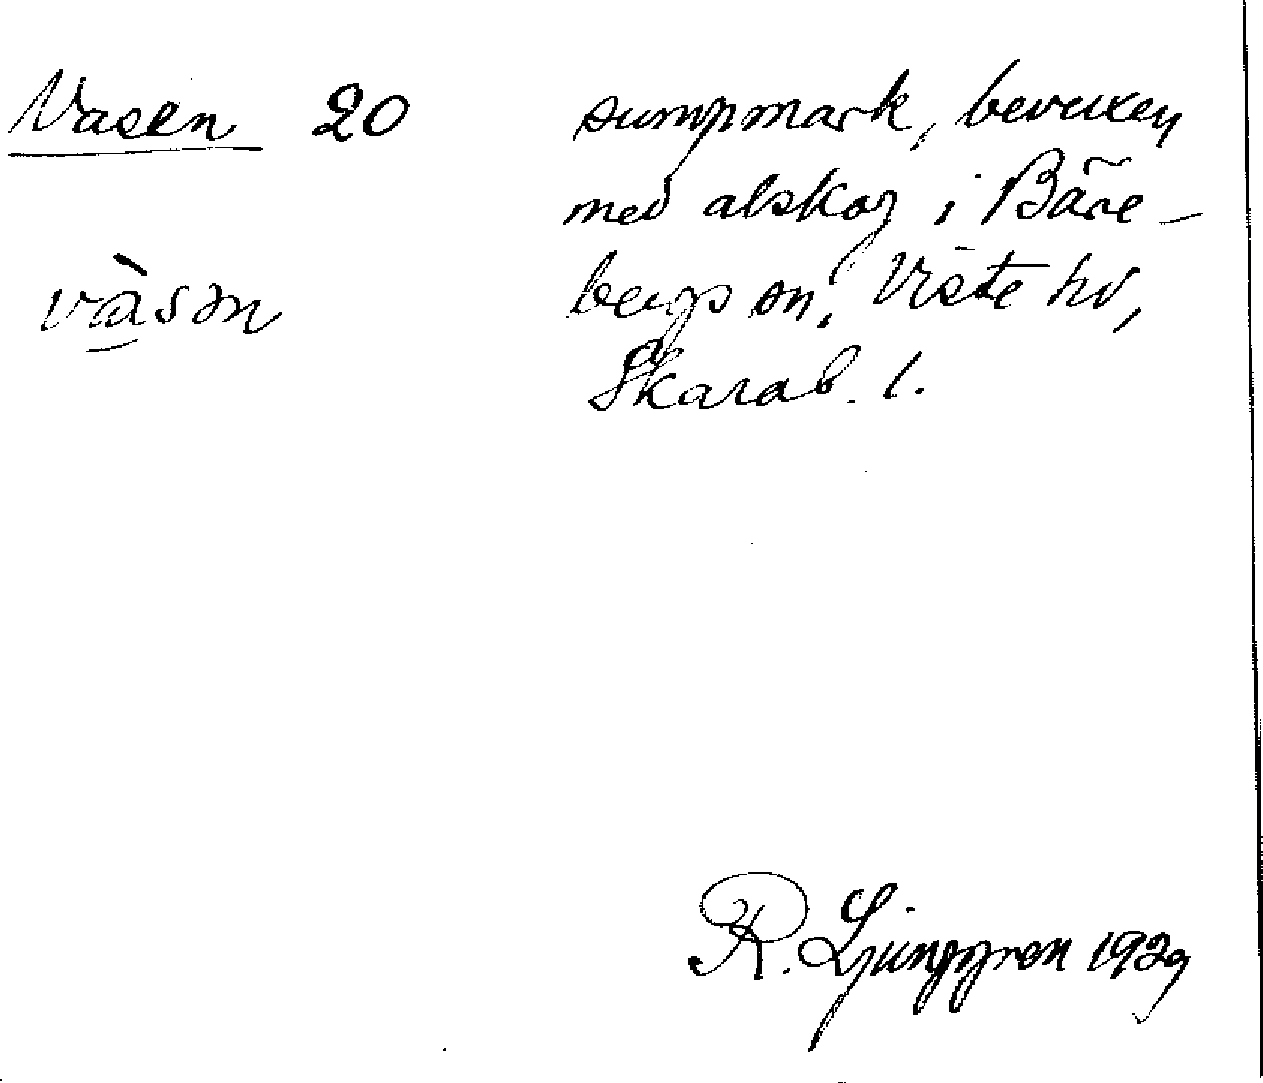 Vasen 20
sumpmark, bevuxen
med alskog i Bäre-
bergs sn, Viste hd,
Skarab. l.
vàsm
R. Ljunggren 1929